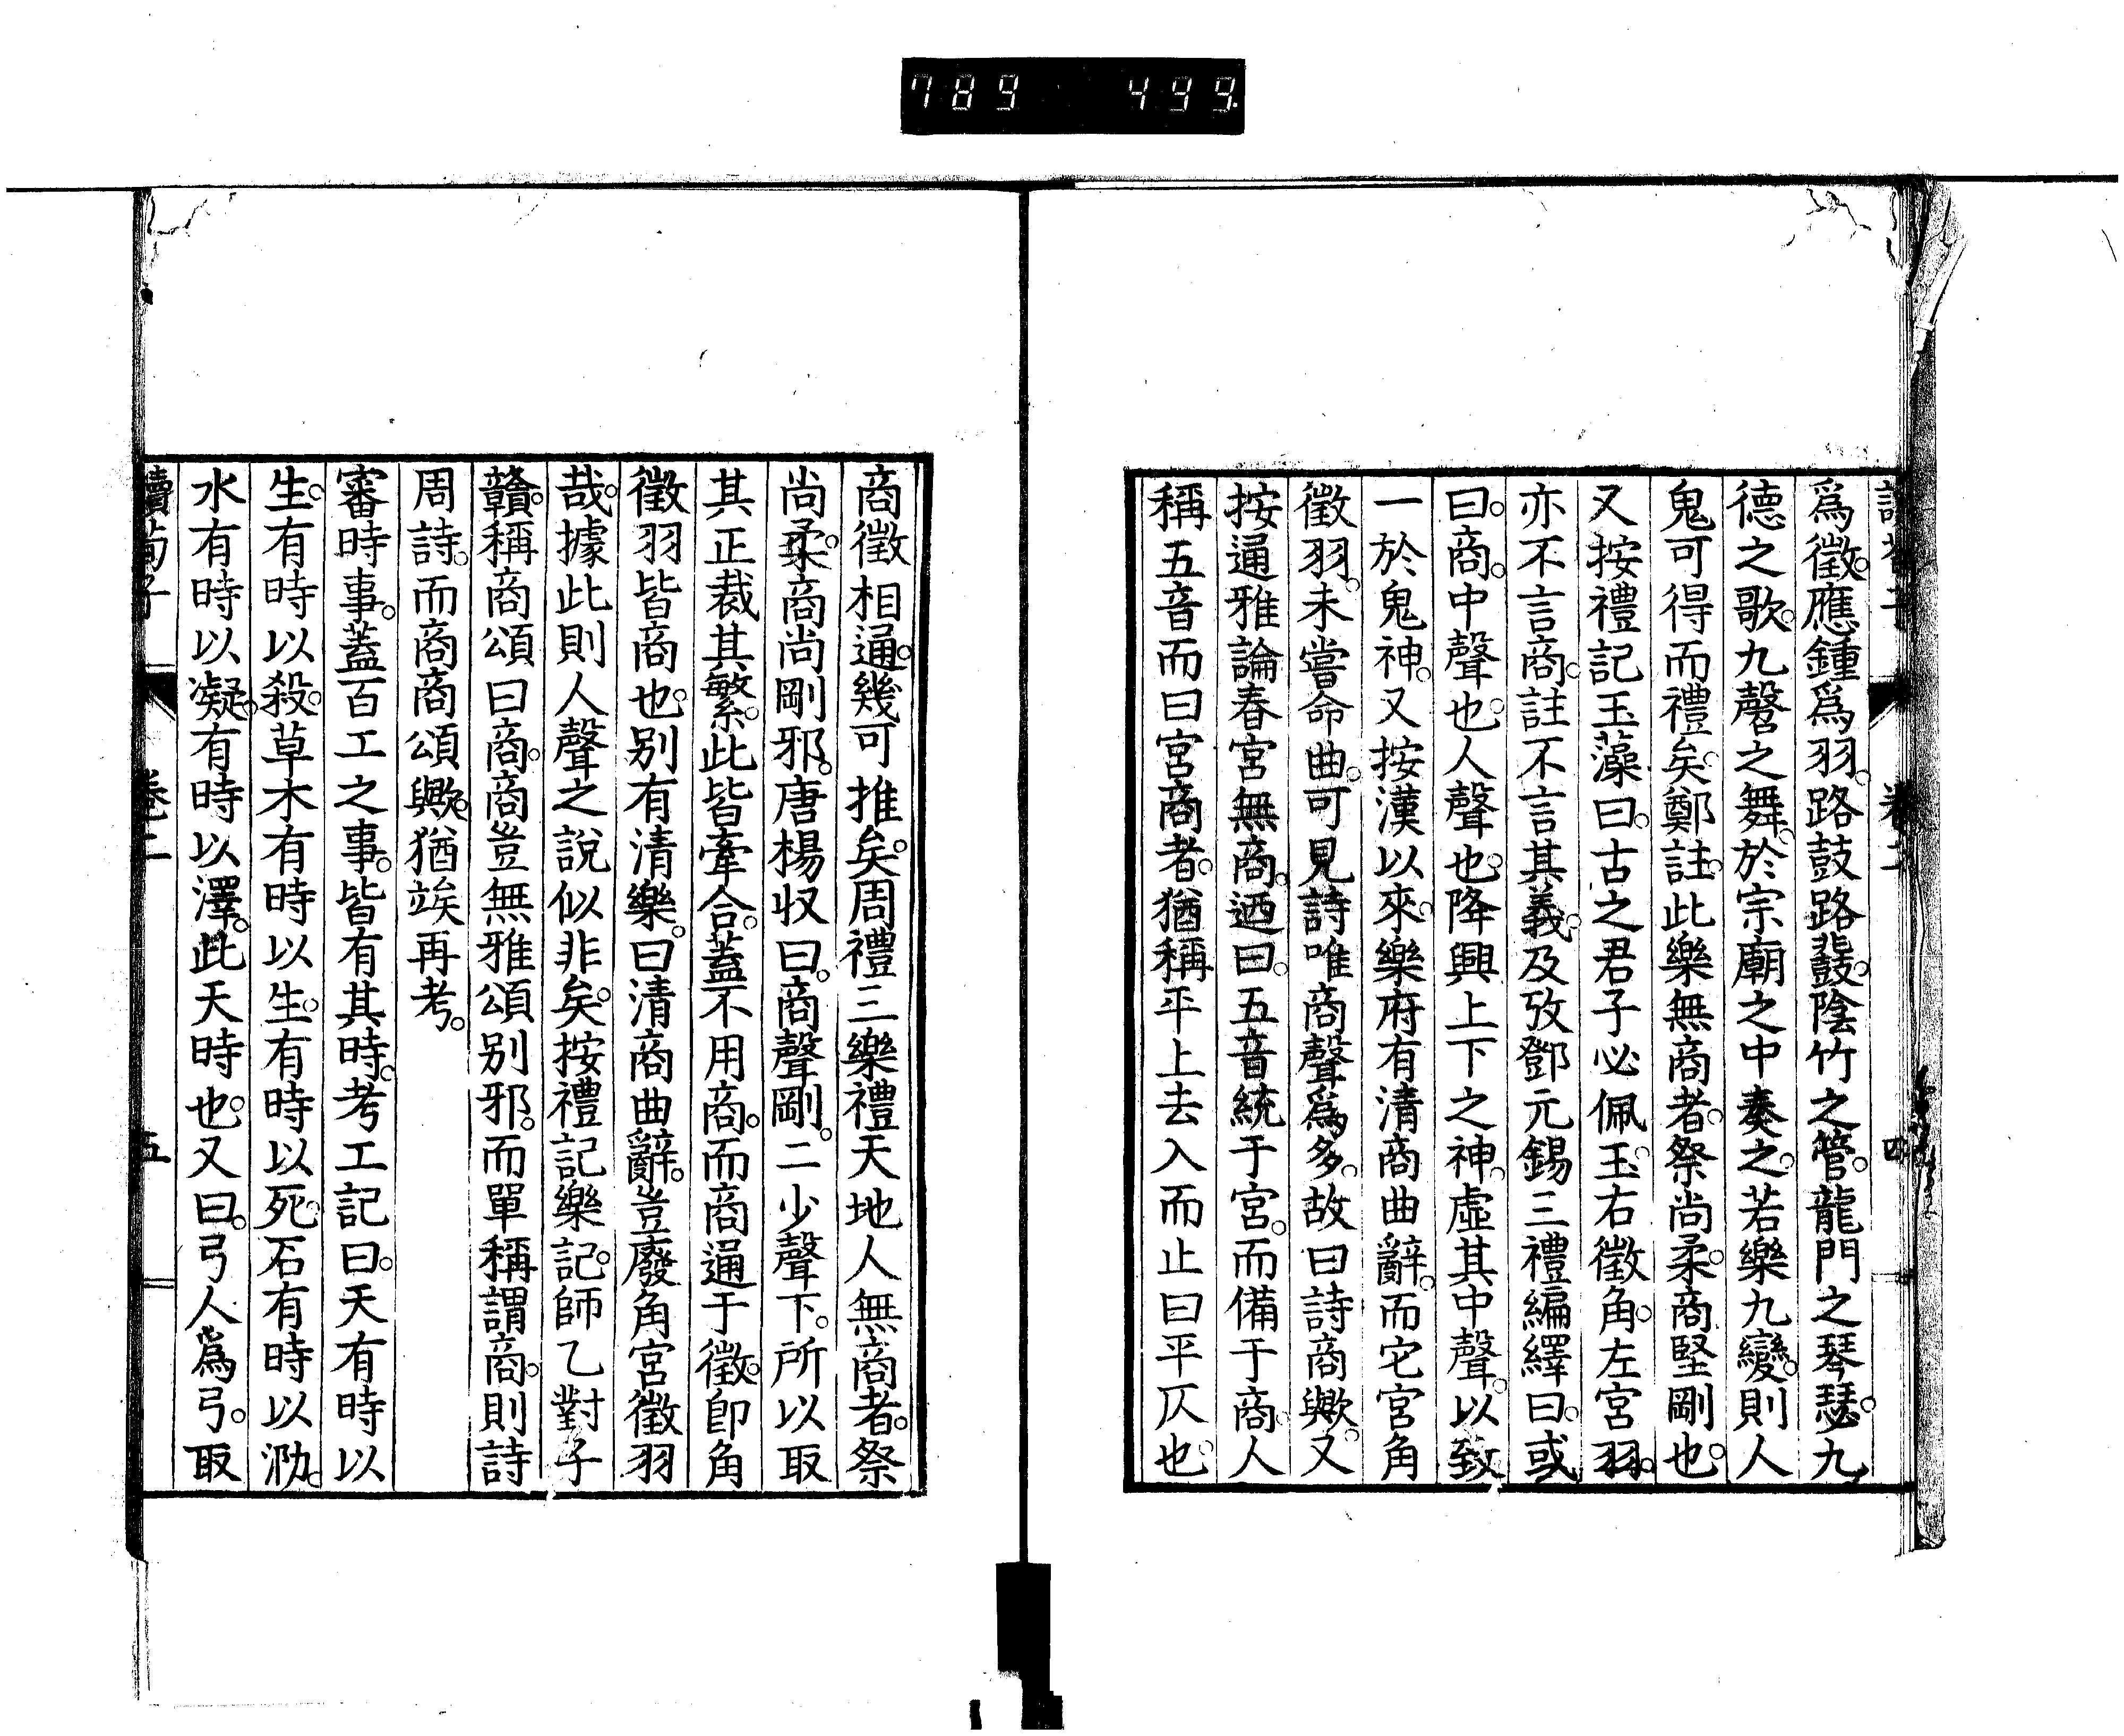 789 499.
爲徵。應鍾爲羽。路鼓路鼗。陰竹之管。龍門之琴瑟。九
德之歌。九磬之舞。於宗廟之中奏之。若樂九變。則人
鬼可得而禮矣。鄭註。此樂無商者。祭尚柔。商堅剛也。
又按禮記玉藻曰。古之君子必佩玉。右徵角。左宮羽。
亦不言商。註不言其義。及攷鄧元錫三禮編繹曰。或
曰。商。中聲也。人聲也。降興上下之神。虛其中聲。以致
一於鬼神。又按漢以來。樂府有清商曲辭。而宅宮角
徵羽。未嘗命曲。可見詩唯商聲爲多。故曰詩商歟。又
按通雅論春宮無商。迺曰。五音統于宮。而備于商。人
稱五音而曰宮商者。猶稱平上去入而止曰平仄也。
商徵相通。幾可推矣。周禮三樂禮天地人無商者。祭
尚柔。商尚剛邪。唐楊収曰。商聲剛。二少聲下。所以取
其正裁其繁。此皆牽合。蓋不用商。而商通于徵。卽角
徵羽皆商也。別有清樂。曰清商曲辭。豈廢角宮徵羽
哉。據此則人聲之說似非矣。按禮記樂記。師乙對子
贛。稱商頌曰商。商豈無雅頌別邪。而單稱謂商。則詩
周詩。而商商頌歟。猶竢再考。
審時事。蓋百工之事。皆有其時。考工記曰。天有時以
生。有時以殺。草木有時以生。有時以死。石有時以泐。
水有時以凝。有時以澤。此天時也。又曰。弓人爲弓。取
讀荀子 卷二 五